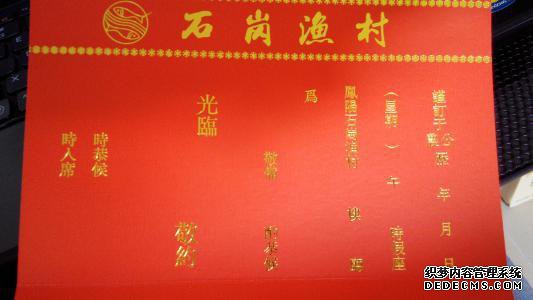 石崗漁村
謹訂于公曆 年 月 日
（星期 ）午 時假座
鳳陽石崗漁村 樓 廳
爲
敬備 酌恭候
光臨
敬約
時恭候
時入席
织梦内容管理系统
DEDECMS.COM